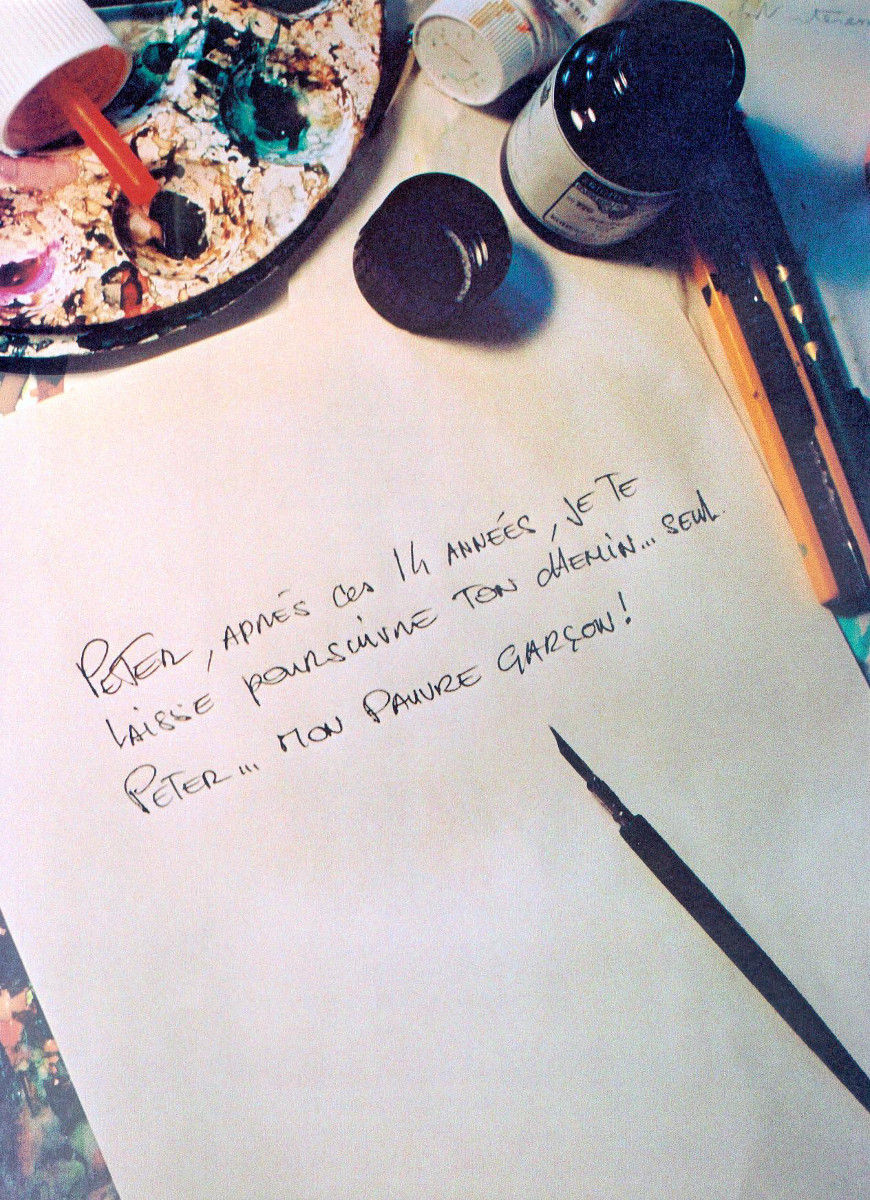 PETER, APRÈS CES 14 ANNÉES, JE TE
LAISSE POURSUIVRE TON CHEMIN... SEUL.
PETER... MON PAUVRE GARÇON!